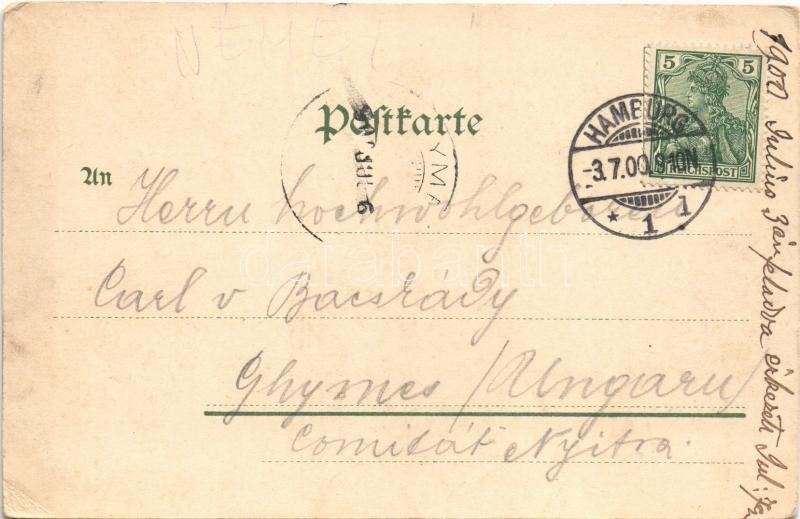 NEMET
Postkarte
5 5
REICHSPOST
HAMBURG
-3.7.00.9-10N
* 1 1.
GHYMES
An Herrn Hochwohlgeboren
Carl v Bacsrády
Ghymes /Ungarn/
Comitát Nyitra.
1900 Julius 3án feladva érkezett Jul:
darabanth